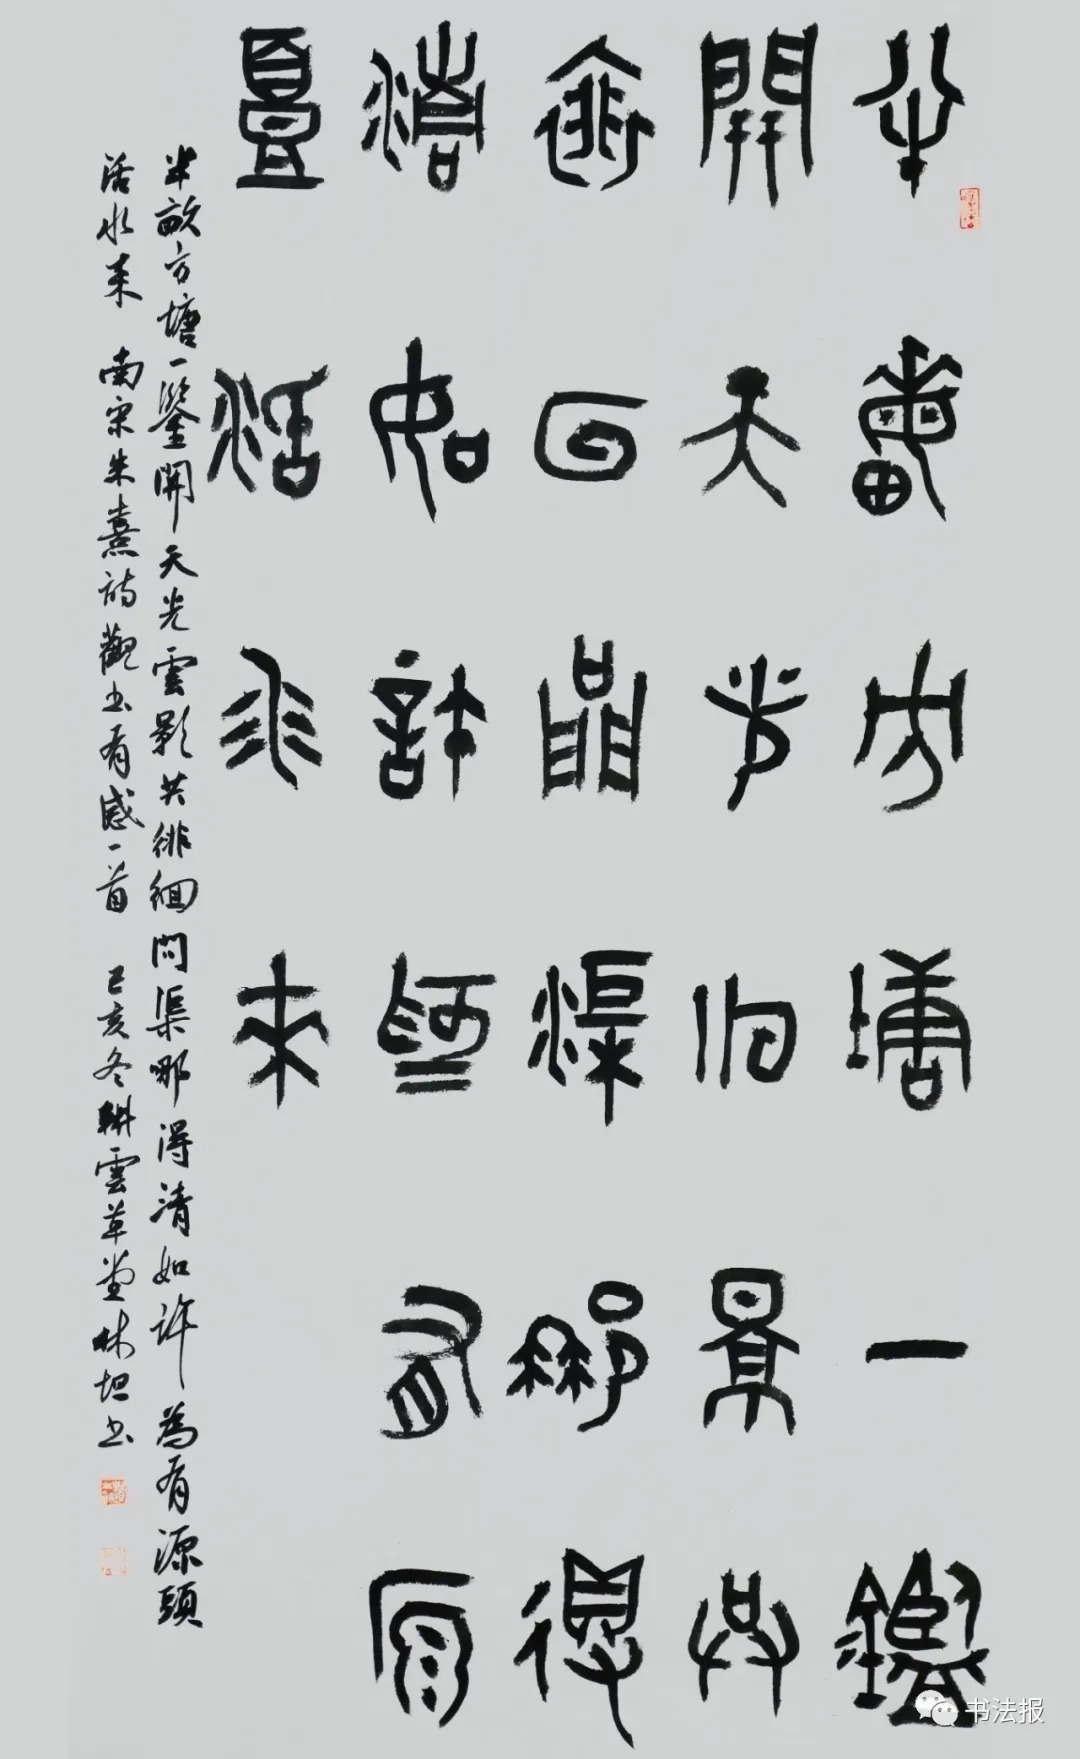 半畝方塘一鑑
開天光云景共
裵回問渠那得
清如許為有原
頭活水來
半畝方塘一鑒開天光雲影共徘徊問渠哪得清如許為有源頭
活水来 南宋朱熹詩觀书有感一首 己亥冬耕雲草堂林坦书
书法报